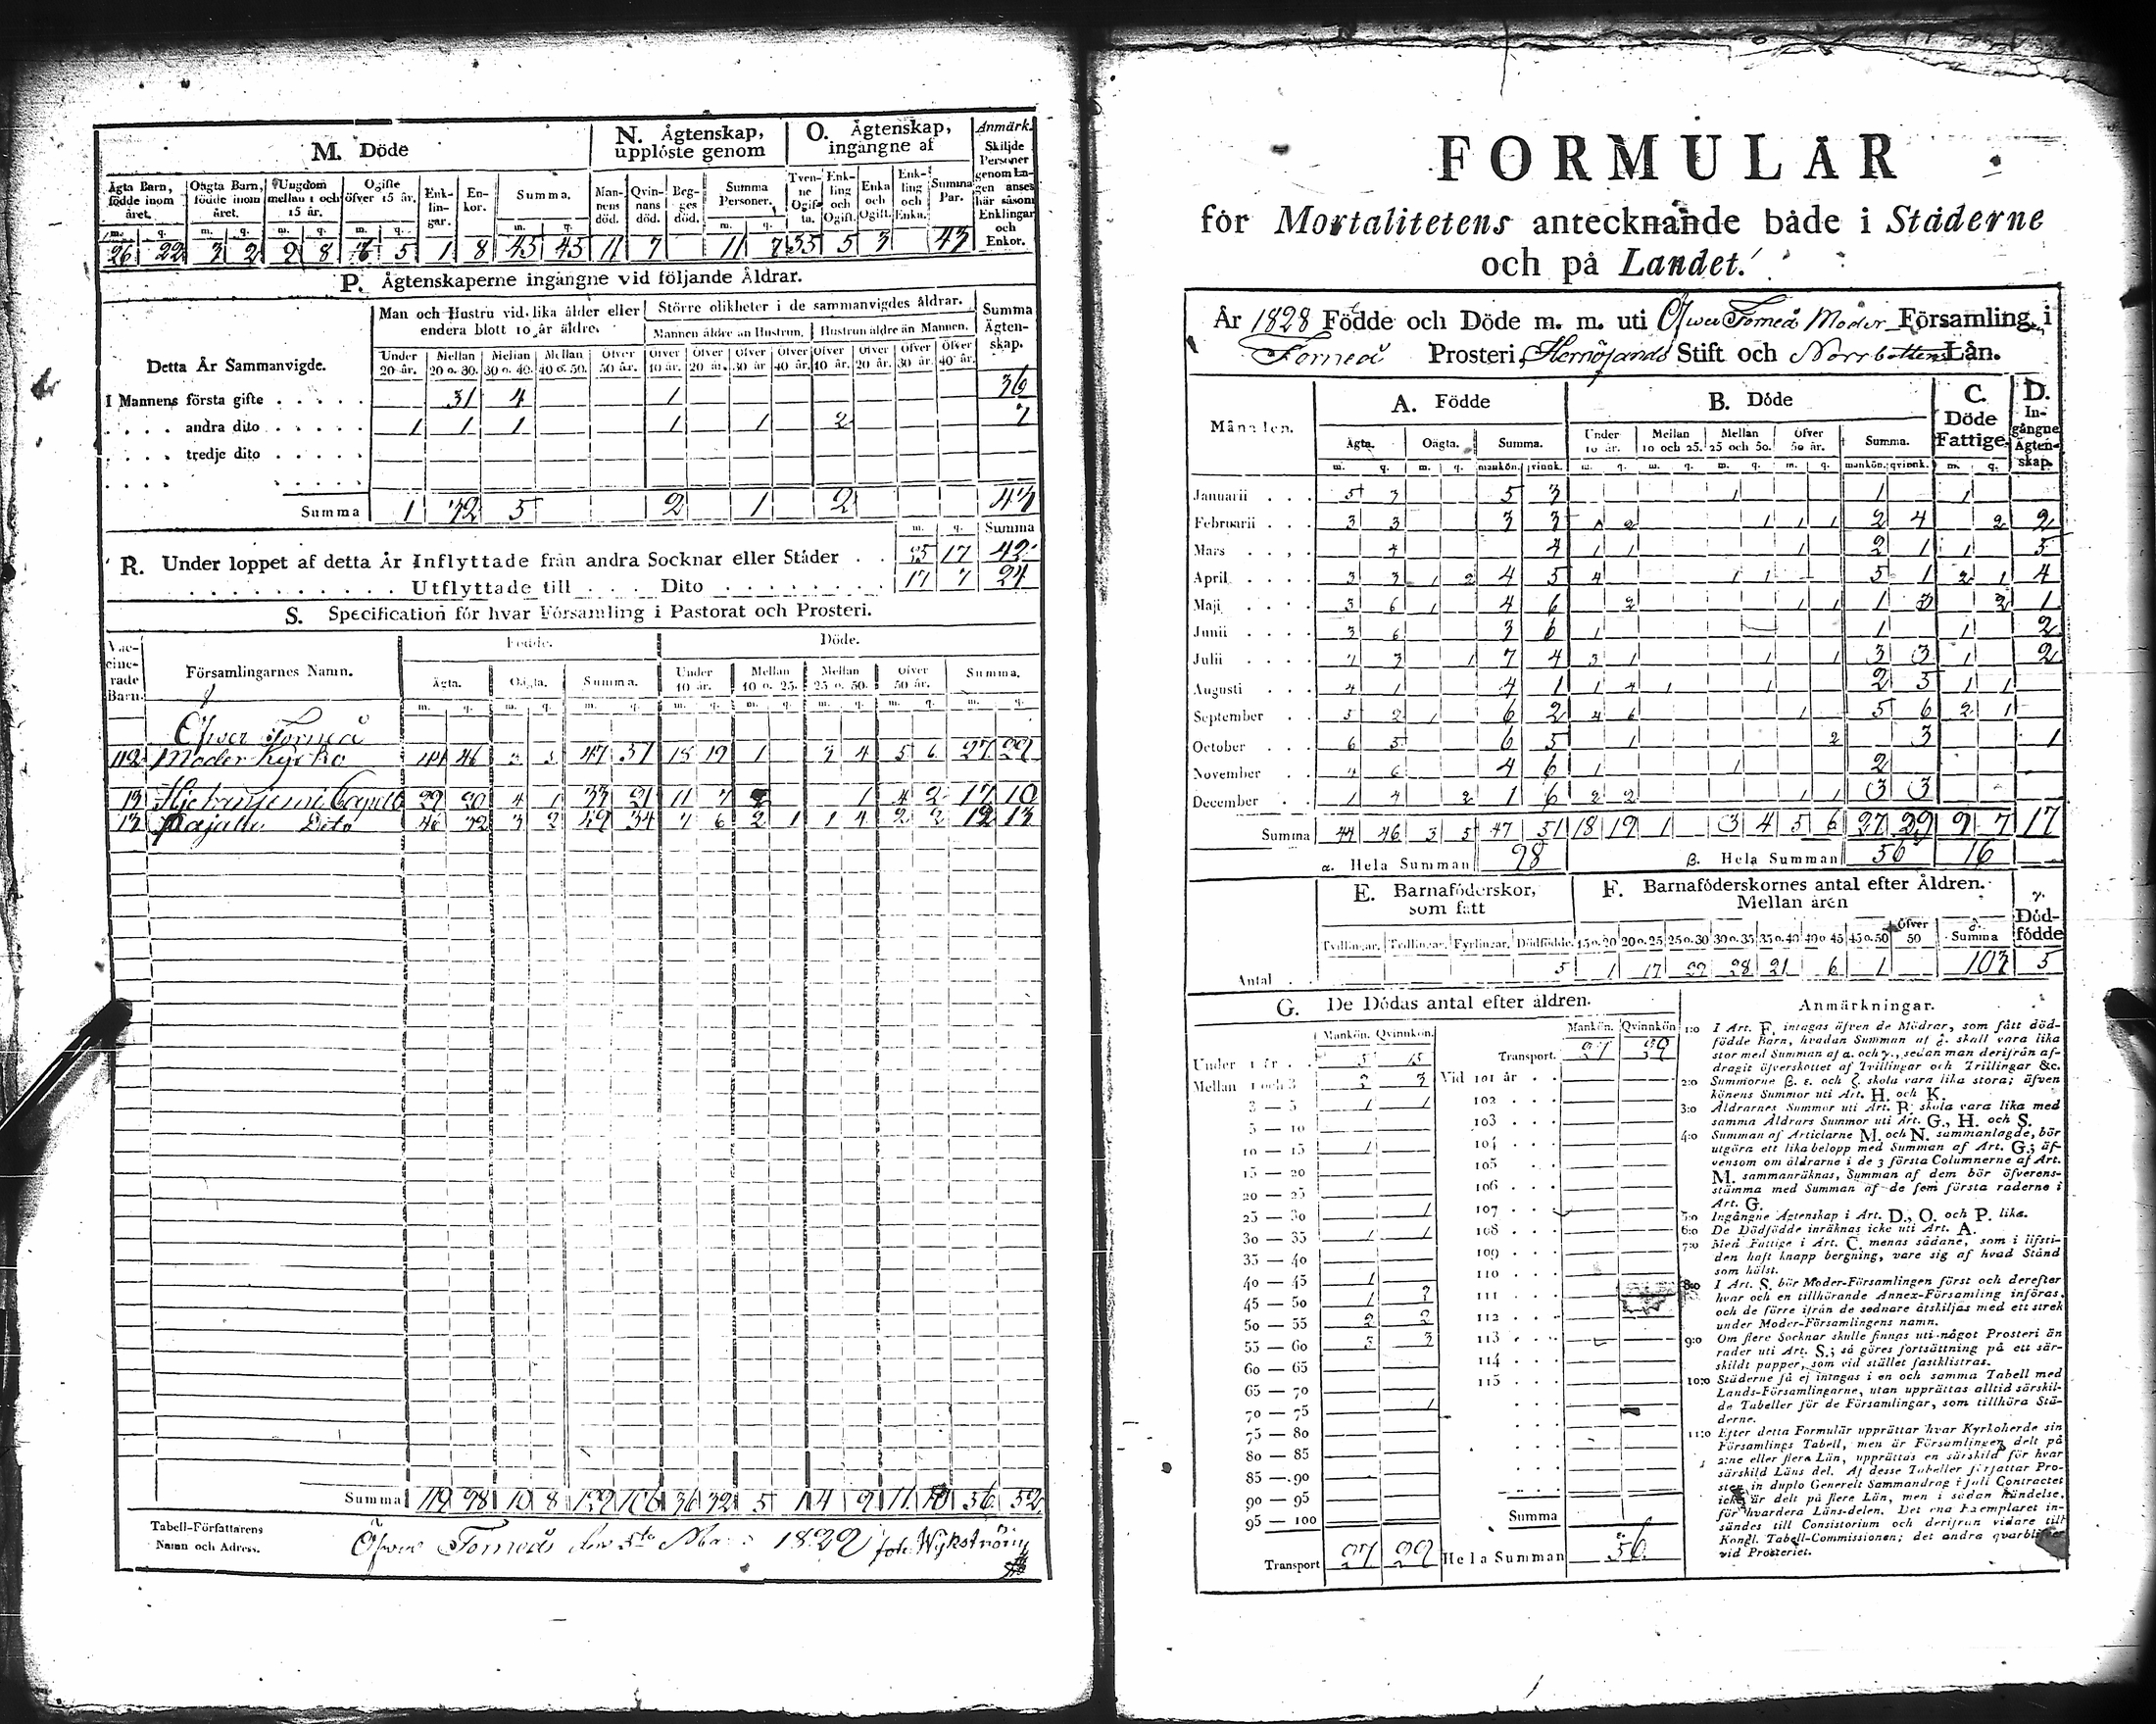 M. Döde
N. Ägtenskap, upplöste genom
O. Ägtenskap, ingångne af
Anmärk. Skiljde Personer genom Lagen anses här såsom Enklingar och Enkor.
Ägta Barn, födde inom året. Oägta Barn, födde inom året. Ungdom mellan 1 och 15 år. Ogifte öfver 15 år. Enklingar. Enkor. Summa.
Mannens död. Qvinnans död. Begges död. Summa Personer.
Tvenne Ogifta. Enkling och Ogift. Enka och Ogift. Enkling och Enka. Summa Par.
m. q. m. q. m. q. m. q. m. q. m. q.
26 22 3 2 9 8 5 1 8 45 45 11 7 11 7 35 5 3 43
P. Ägtenskaperne ingångne vid följande Åldrar.
Detta År Sammanvigde.
Man och Hustru vid lika ålder eller endera blott 10 år äldre.
Större olikheter i de sammanvigdes åldrar.
Summa Ägtenskap.
Mannen äldre än Hustrun. Hustrun äldre än Mannen.
Under 20 år. Mellan 20 o. 30. Mellan 30 o. 40. Mellan 40 o. 50. Öfver 50 år. Öfver 10 år. Öfver 20 år. Öfver 30 år. Öfver 40 år. Öfver 10 år. Öfver 20 år. Öfver 30 år. Öfver 40 år.
I Mannens första gifte . . . . . 31 4 1 36
. . . . andra dito . . . . . 1 1 1 1 1 2 7
. . . . tredje dito . . . . .
Summa 1 32 5 2 1 2 43
m. q. Summa
R. Under loppet af detta År Inflyttade från andra Socknar eller Städer . . 17 42
Utflyttade till . . . . Dito . . . . . . . . 17 7 24
S. Specification för hvar Församling i Pastorat och Prosteri.
Vaccinerade Barn.
Församlingarnes Namn.
Födde. Döde.
Ägta. Oägta. Summa. Under 10 år. Mellan 10 o. 25. Mellan 25 o. 50. Öfver 50 år. Summa.
m. q. m. q. m. q. m. q. m. q. m. q. m. q. m. q.
Öfver Torneå
112 Moder Kyrka 44 46 3 5 47 51 18 19 1 3 4 5 6 27 29
13 Hjetaniemi Capell 29 20 4 1 33 21 11 7 2 1 4 2 17 10
13 Pajala Dito 46 32 3 2 49 34 7 6 2 1 1 4 2 2 12 13
Summa 119 98 10 8 129 106 36 32 5 1 4 9 11 10 56 52
Tabell-Författarens Namn och Adress.
Öfver Torneå den 5te 1829 Joh. Wijkström
FORMULÄR
för Mortalitetens antecknande både i Städerne
och på Landet.
År 1828 Födde och Döde m. m. uti Öfver Torneå Moder Församling, i
Torneå Prosteri, Hernösands Stift och Norrbottens Län.
Månaden.
A. Födde
B. Döde
C. Döde Fattige.
D. Ingångne Ägtenskap.
Ägta. Oägta. Summa. Under 10 år. Mellan 10 och 25. Mellan 25 och 50. Öfver 50 år. Summa.
m. q. m. q. mankön. qvinnk. m. q. m. q. m. q. m. q. mankön. qvinnk. m. q.
Januarii . . . 5 3 5 3 1 1 1
Februarii . . . 3 3 3 3 1 2 1 1 1 2 4 2 2
Mars . . . 4 4 1 1 1 2 1 1 5
April . . . . 3 3 1 2 4 5 4 1 1 5 1 2 1 4
Maji . . . . 3 6 1 4 6 2 1 1 1 3 3 1
Junii . . . . 3 6 3 6 1 1 1 2
Julii . . . . 7 3 1 7 4 3 1 1 1 3 3 1 2
Augusti . . . 4 1 4 1 1 4 1 1 2 5 1 1
September . . 5 2 1 6 2 4 6 1 5 6 2 1
October . . . 6 5 6 5 1 2 3 1
November . . 4 6 4 6 1 1 2
December . . 1 4 2 1 6 2 2 1 1 3 3
Summa 44 46 3 5 47 51 18 19 1 3 4 5 6 27 29 9 7 17
α. Hela Summan 98 β. Hela Summan 56 16
E. Barnaföderskor, som fått
F. Barnaföderskornes antal efter Åldren. Mellan åren
γ. Dödfödde
Tvillingar. Trillingar. Fyrlingar. Dödfödde. 15 o. 20 20 o. 25 25 o. 30 30 o. 35 35 o. 40 40 o. 45 45 o. 50 Öfver 50 δ. Summa
Antal . . 5 1 17 29 28 21 6 1 103 5
G. De Dödas antal efter åldren.
Mankön. Qvinnkön. Mankön. Qvinnkön
Under 1 år . . 15 Transport. 27 29
Mellan 1 och 3 3 Vid 101 år . .
3 — 5 1 1 102 . . .
5 — 10 103 . . .
10 — 15 1 104 . . .
15 — 20 105 . . .
20 — 25 106 . . .
25 — 30 1 107 . . .
30 — 35 1 1 108 . . .
35 — 40 109 . . .
40 — 45 1 110 . . .
45 — 50 1 2 111 . . .
50 — 55 2 2 112 . . .
55 — 60 3 3 113 . . .
60 — 65 114 . . .
65 — 70 115 . . .
70 — 75 1
75 — 80
80 — 85
85 — 90
90 — 95
95 — 100 Summa
Transport 27 29 Hela Summan ε. 56
Anmärkningar.
1:o I Art. F. intagas äfven de Mödrar, som fått död-
födde Barn, hvadan Summan af δ. skall vara lika
stor med Summan af α. och γ., sedan man derifrån af-
dragit öfverskottet af Tvillingar och Trillingar &c.
2:o Summorne β. ε. och ζ. skola vara lika stora; äfven
könens Summor uti Art. H. och K.
3:o Åldrarnes Summor uti Art. B. skola vara lika med
samma Åldrars Summor uti Art. G., H. och S.
4:o Summan af Articlarne M. och N. sammanlagde, bör
utgöra ett lika belopp med Summan af Art. G.; äf-
vensom om åldrarne i de 3 första Columnerne af Art.
M. sammanräknas, Summan af dem bör öfverens-
stämma med Summan af de fem första raderne i
Art. G.
5:o Ingångne Ägtenskap i Art. D., O. och P. lika.
6:o De Dödfödde inräknas icke uti Art. A.
7:o Med Fattige i Art. C. menas sådane, som i lifsti-
den haft knapp bergning, vare sig af hvad Stånd
som hälst.
8:o I Art. S. bör Moder-Församlingen först och derefter
hvar och en tillhörande Annex-Församling införas,
och de förre ifrån de sednare åtskiljas med ett strek
under Moder-Församlingens namn.
9:o Om flere Socknar skulle finnas uti något Prosteri än
rader uti Art. S.; så göres fortsättning på ett sär-
skildt papper, som vid stället fastklistras.
10:o Städerne få ej intagas i en och samma Tabell med
Lands-Församlingarne, utan upprättas alltid särskil-
de Tabeller för de Församlingar, som tillhöra Stä-
derne.
11:o Efter detta Formulär upprättar hvar Kyrkoherde sin
Församlings Tabell, men är Församlingen delt på
2:ne eller flera Län, upprättas en särskild för hvar
särskild Läns del. Af desse Tabeller författar Pro-
sten in duplo Generelt Sammandrag i fall Contractet
icke är delt på flere Län, men i sådan händelse,
för hvardera Läns-delen. Det ena Exemplaret in-
sändes till Consistorium och derifrån vidare till
Kongl. Tabell-Commissionen; det andra qvarblifver
vid Prosteriet.